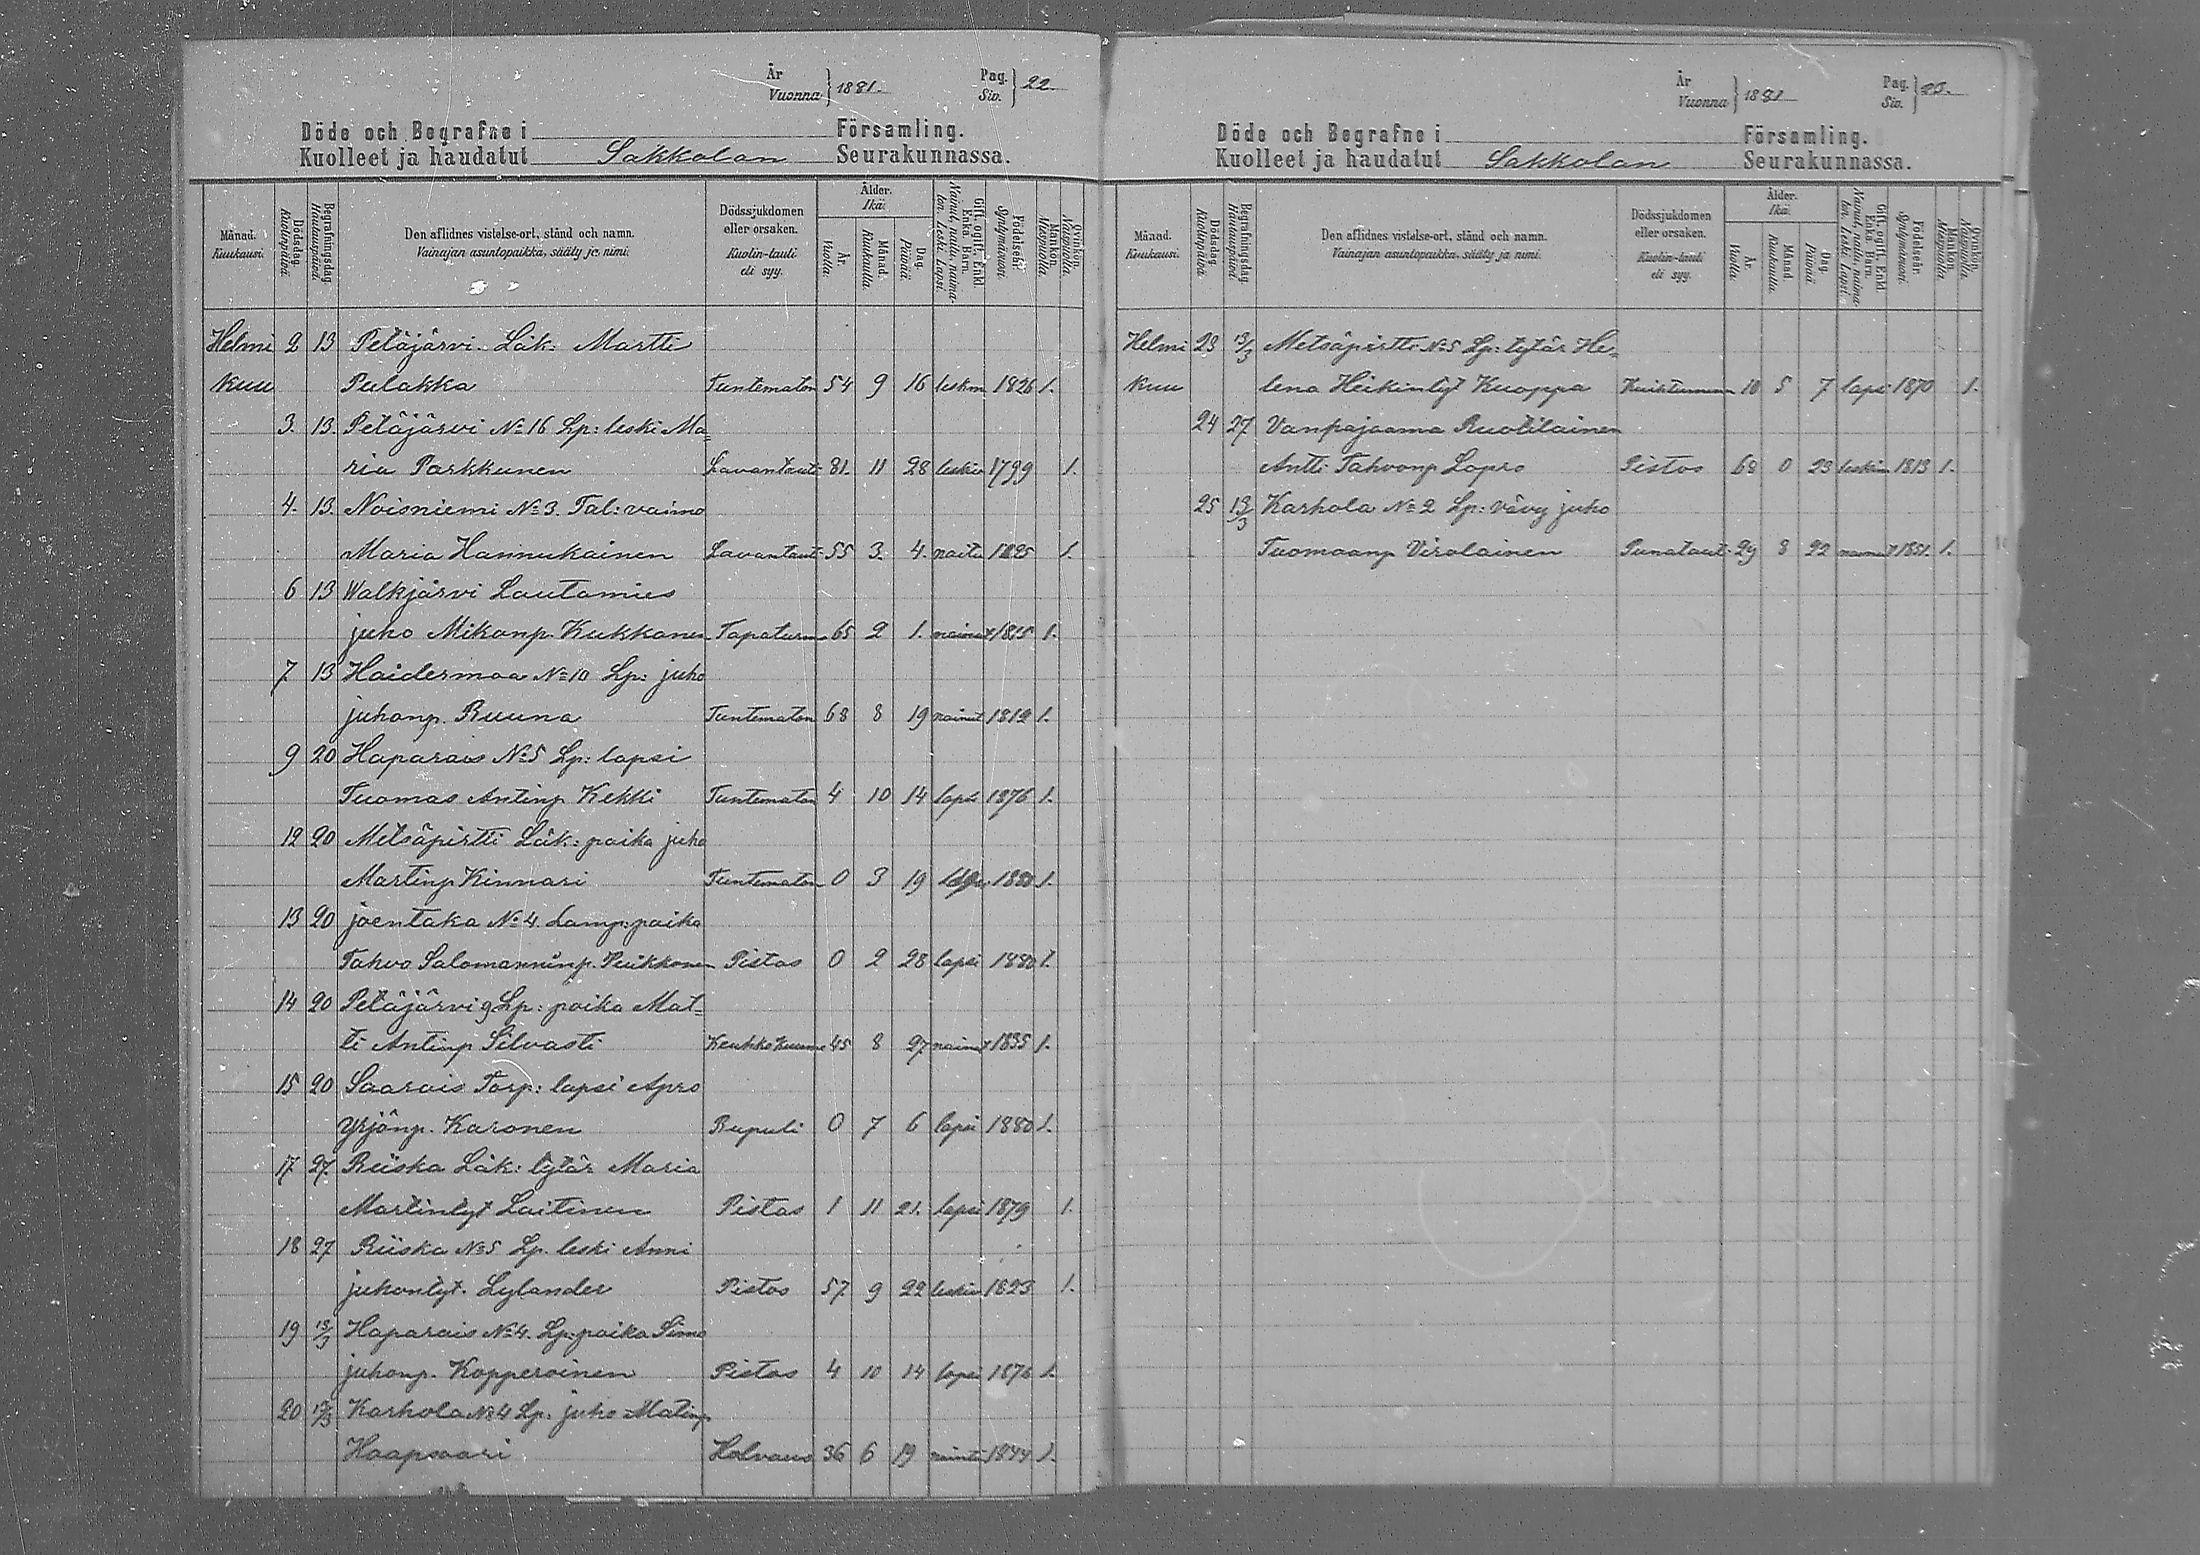 År
Vuonna } 1881.
Pag.
Siv. } 22.
Döde och Begrafne i Församling.
Kuolleet ja haudatut Sakkolan Seurakunnassa.
Månad. Kuukausi.
Dödsdag. Kuolinpäivä.
Begrafningsdag. Hautauspäivä.
Den aflidnes vistelse-ort, stånd och namn.
Vainajan asuntopaikka, sääty ja nimi.
Dödssjukdomen eller orsaken.
Kuolin-tauti eli syy.
Ålder. Ikä.
År. Vuotta.
Månad. Kuukautta.
Dag. Päivää.
Gift, ogift, Enkl. Enka, Barn.
Nainut, naitu, naimaton, Leski, Lapsi.
Födelseår. Syntymävuosi.
Mankön. Miespuolia.
Qvinkön. Naispuolia.
Helmi 2 13 Petäjärvi Läk: Martti
kuu Pulakka Tuntematon 54 9 16 leskm 1826 1.
3. 13. Petäjärvi No 16 Lp: leski Ma=
ria Parkkunen Lavantauti 81. 11 28 leskiv 1799 1.
4. 13. Noisniemi No 3. Tal: vaimo
Maria Hannukainen Lavantauti 55 3. 4. naitu 1825 1.
6 13 Walkjärvi Lautamies
juho Mikonp. Kukkonen Tapaturma 65 2 1. nainut 1815 1.
7 13 Haidermaa No 10 Lp: juho
juhonp. Ruuna Tuntematon 68 8 19 nainut 1812 1.
9 20 Haparais No 5 Lp: lapsi
Tuomas Antinp Kekki Tuntematon 4 10 14 lapsi 1876 1.
12 20 Metsäpirtti Läk: poika juho
Martinp Kinnari Tuntematon 0 3 19 lapsi 1880 1.
13 20 joentaka No 4. Lamp: poika
Tahvo Salomanninp. Puikkonen Pistos 0 2 28 lapsi 1880 1.
14 20 Petäjärvi 9 Lp: poika Mat=
ti Antinp Silvasti Keuhko kuume 45 8 27 nainut 1835 1.
15 20 Saarois Torp: lapsi Apro
Yrjönp. Karonen Rupuli 0 7 6 lapsi 1880 1.
17 27. Riiska Läk: tytär Maria
Martintyt Laitinen Pistos 1 11 21. lapsi 1879 1.
18 27 Riiska No 5 Lp. leski Anni
juhontyt. Lylander Pistos 57 9 22 leskiv 1823 1.
19 13/3 Haparais No 4. Lp: poika Simo
juhonp. Kopperoinen Pistos 4 10 14 lapsi 1876 1.
20 13/3 Karhola No 4 Lp. juho Matinp
Haapsaari Halvaus 36 6 19 1844 1.
År
Vuonna } 1881
Pag.
Siv. } 23.
Döde och Begrafne i Församling.
Kuolleet ja haudatut Sakkolan Seurakunnassa.
Månad. Kuukausi.
Dödsdag. Kuolinpäivä.
Begrafningsdag. Hautauspäivä.
Den aflidnes vistelse-ort, stånd och namn.
Vainajan asuntopaikka, sääty ja nimi.
Dödssjukdomen eller orsaken.
Kuolin-tauti eli syy.
Ålder. Ikä.
År. Vuotta.
Månad. Kuukautta.
Dag. Päivää.
Gift, ogift, Enkl. Enka, Barn.
Nainut, naitu, naimaton, Leski, Lapsi.
Födelseår. Syntymävuosi.
Mankön. Miespuolia.
Qvinkön. Naispuolia.
Helmi 23 13/3 Metsäpirtti No 5 Lp: tytär He=
kuu lena Heikintyt Kuoppa 10 5 7 lapsi 1870 1.
24 27 Vanpajaama Ruotilainen
Antti Tahvonp Lopro Pistos 68 0 23 leskim 1813 1.
25 13/3 Karhola No 2 Lp: vävy juho
Tuomaanp Virolainen Punataut. 29 8 22 nainut 1851. 1.